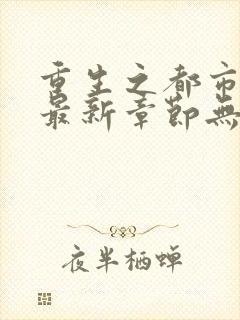 重生之都市
最新章节无
夜半栖蝉